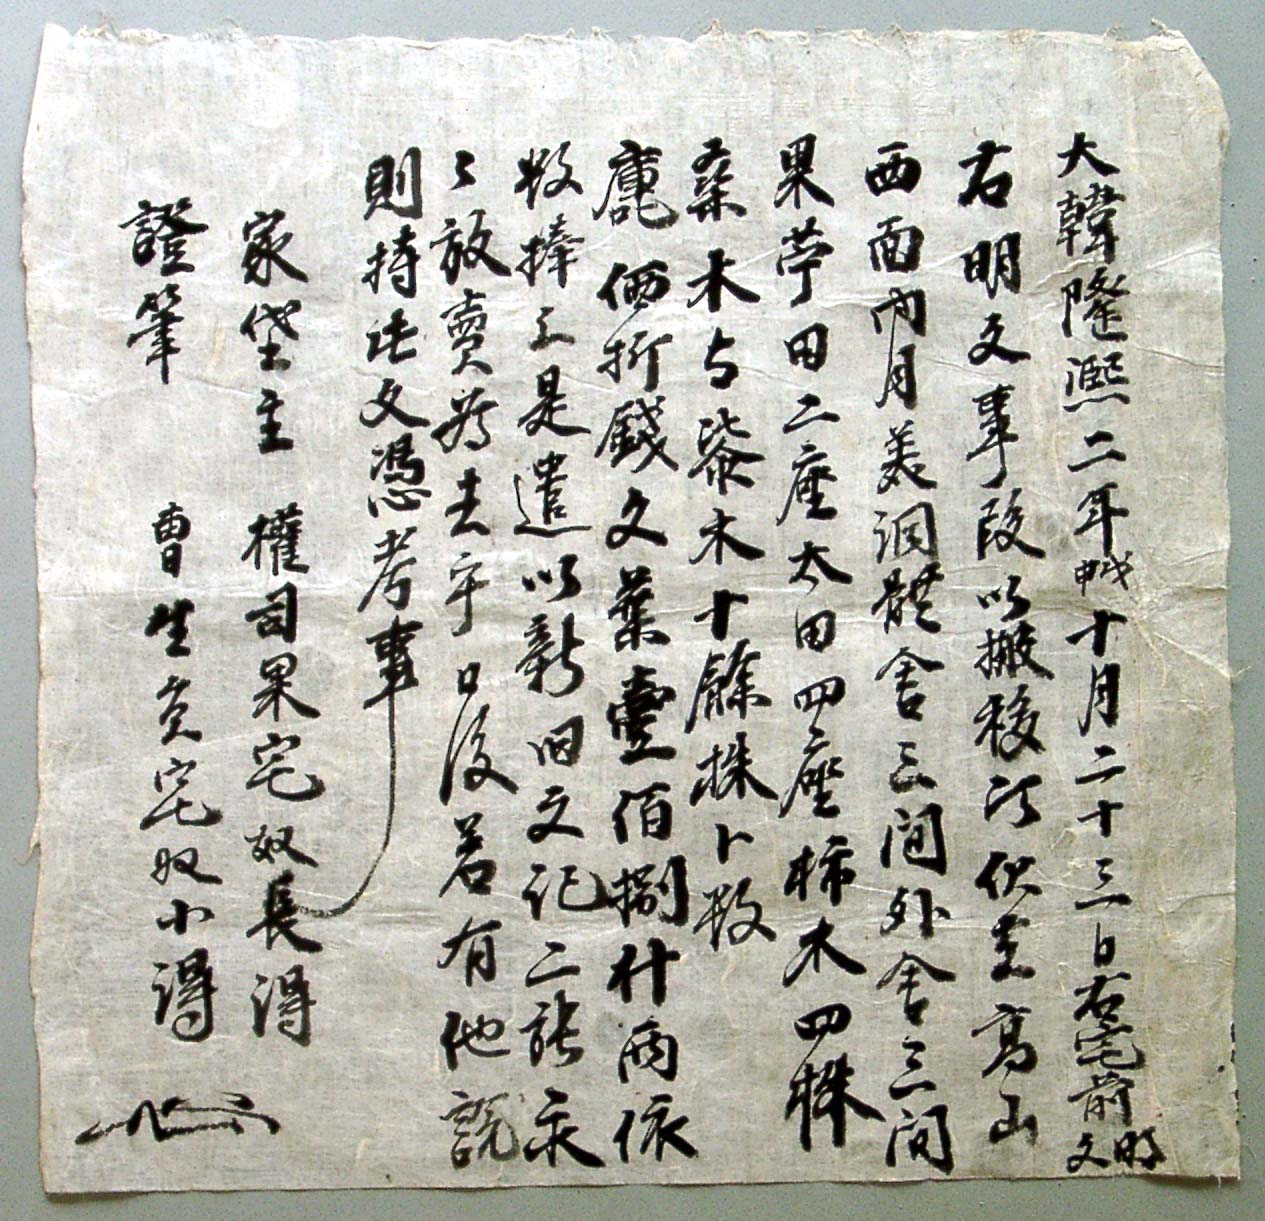 大韓隆熙二年戊申十月二十三日右宅前明文
右明文事段以搬移次伏在高山
西面內月美洞體舍三間外舍三間
果苧田二座太田四座柿木四株
桑木与柒木十餘株卜数
庫乙 価折錢文葉壹佰捌什兩依
数捧上是遣以新旧文記二張永
〻放賣爲去乎日後若有他說
則持此文憑考事
家垈主 權司果宅奴長得
證筆 曹生員宅奴小得